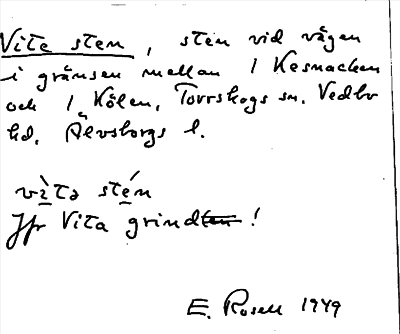 Vita sten, sten vid vägen
i gränsen mellan 1 Kesnacken
och 1 Kölen, Torrskogs sn. Vedbo
hd, Älvsborgs l.
vìta stén
Jfr Vita grind !
E. Rosell 1949